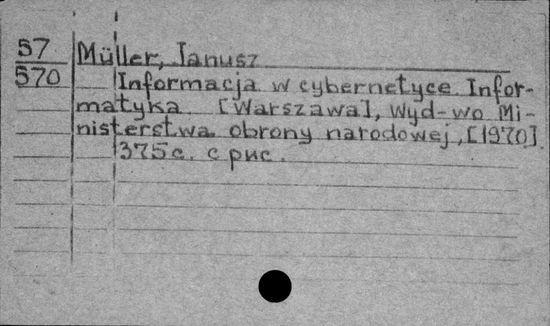 57 Müller, Janusz
570 Informacja w cybernetyce Infor-
matyka [Warszawa], Wyd-wo Mi-
nisterstwa obrony narodowej, [1970]
375 с. с рис.